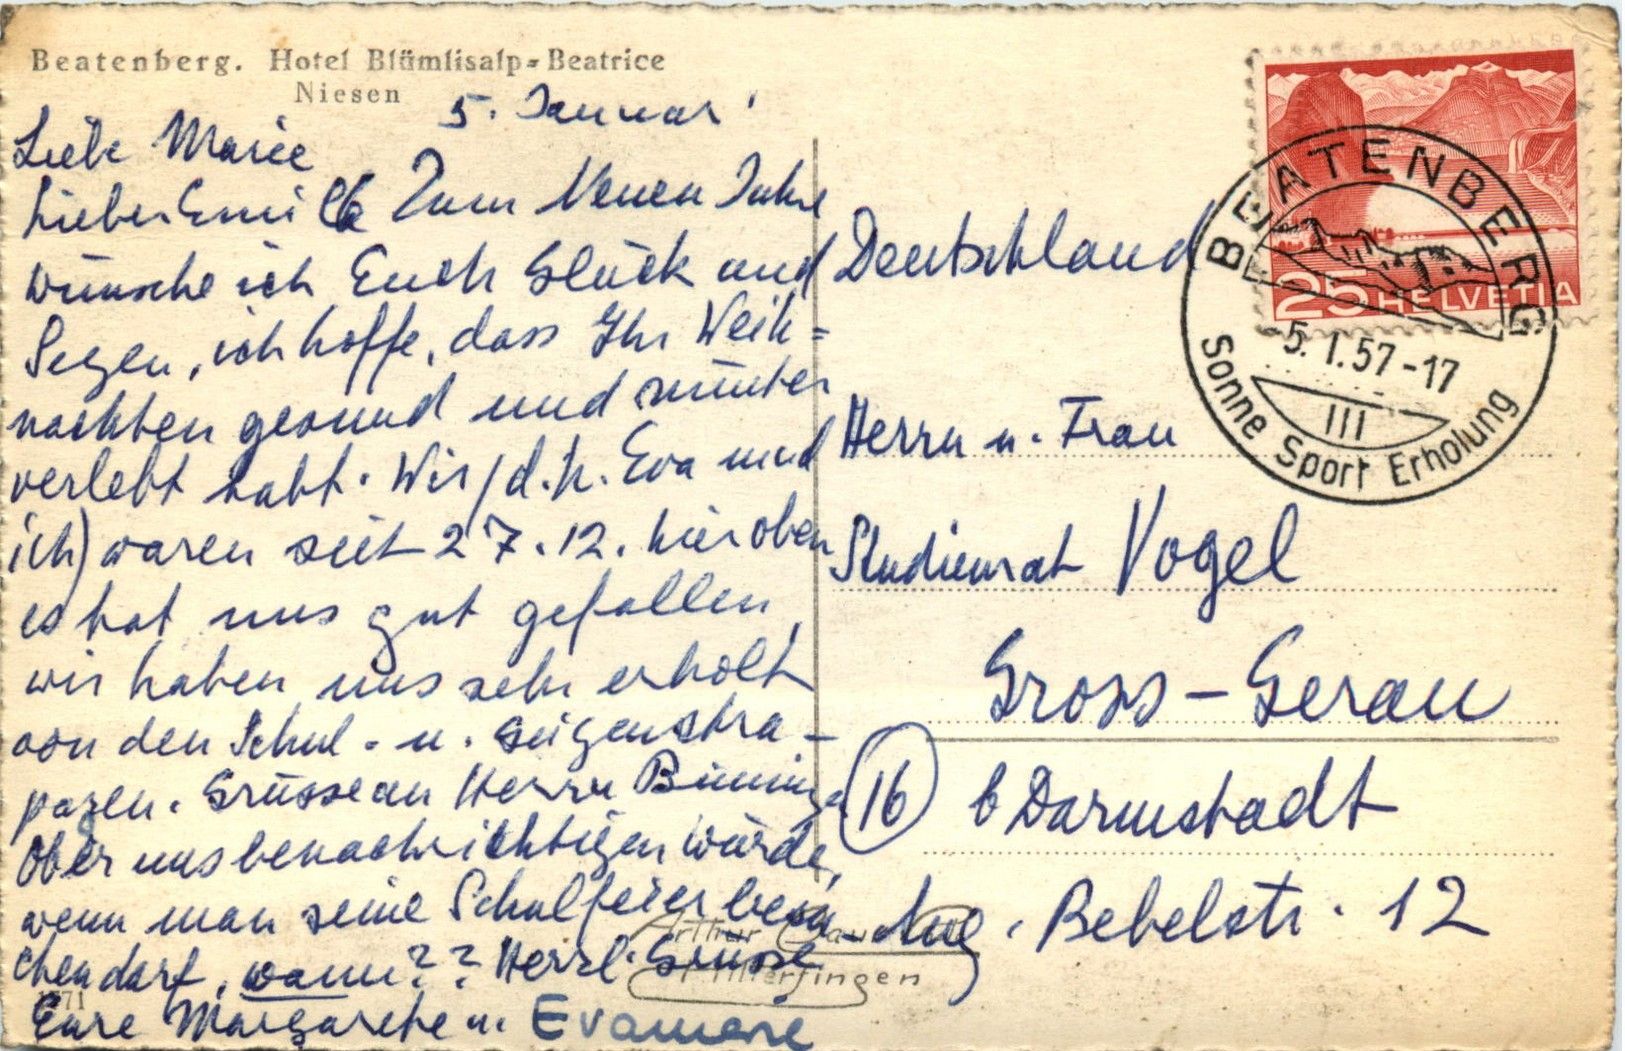 Beatenberg. Hotel Blümlisalp-Beatrice
Niesen
5. Januar
Liebe Mariele
Lieber Emil! Zum Neuen Jahre
wünsche ich Euch Glück und
Segen, ich hoffe, dass Ihr Weih=
nachten gesund und munter
verlebt habt. Wir (d.h. Eva und
ich) waren seit 27.12. hier oben
es hat uns gut gefallen,
wir haben uns sehr erholt
von den Schul- u. Geigenstra-
pazen. Grüsse an Herrn
Ob er uns benachrichtigen würde,
wenn man seine Schulfeier besu-
chen darf, wann?? Herzl. Grüsse
Eure Margarete u. Evamarie
1571
Arthur
BEATENBERG
5. I. 57-17
III
Sonne Sport Erholung
25 HELVETIA
Deutschland
Herrn u. Frau
Studienrat Vogel
Gross-Gerau
(16) b Darmstadt
Aug. Bebelstr. 12